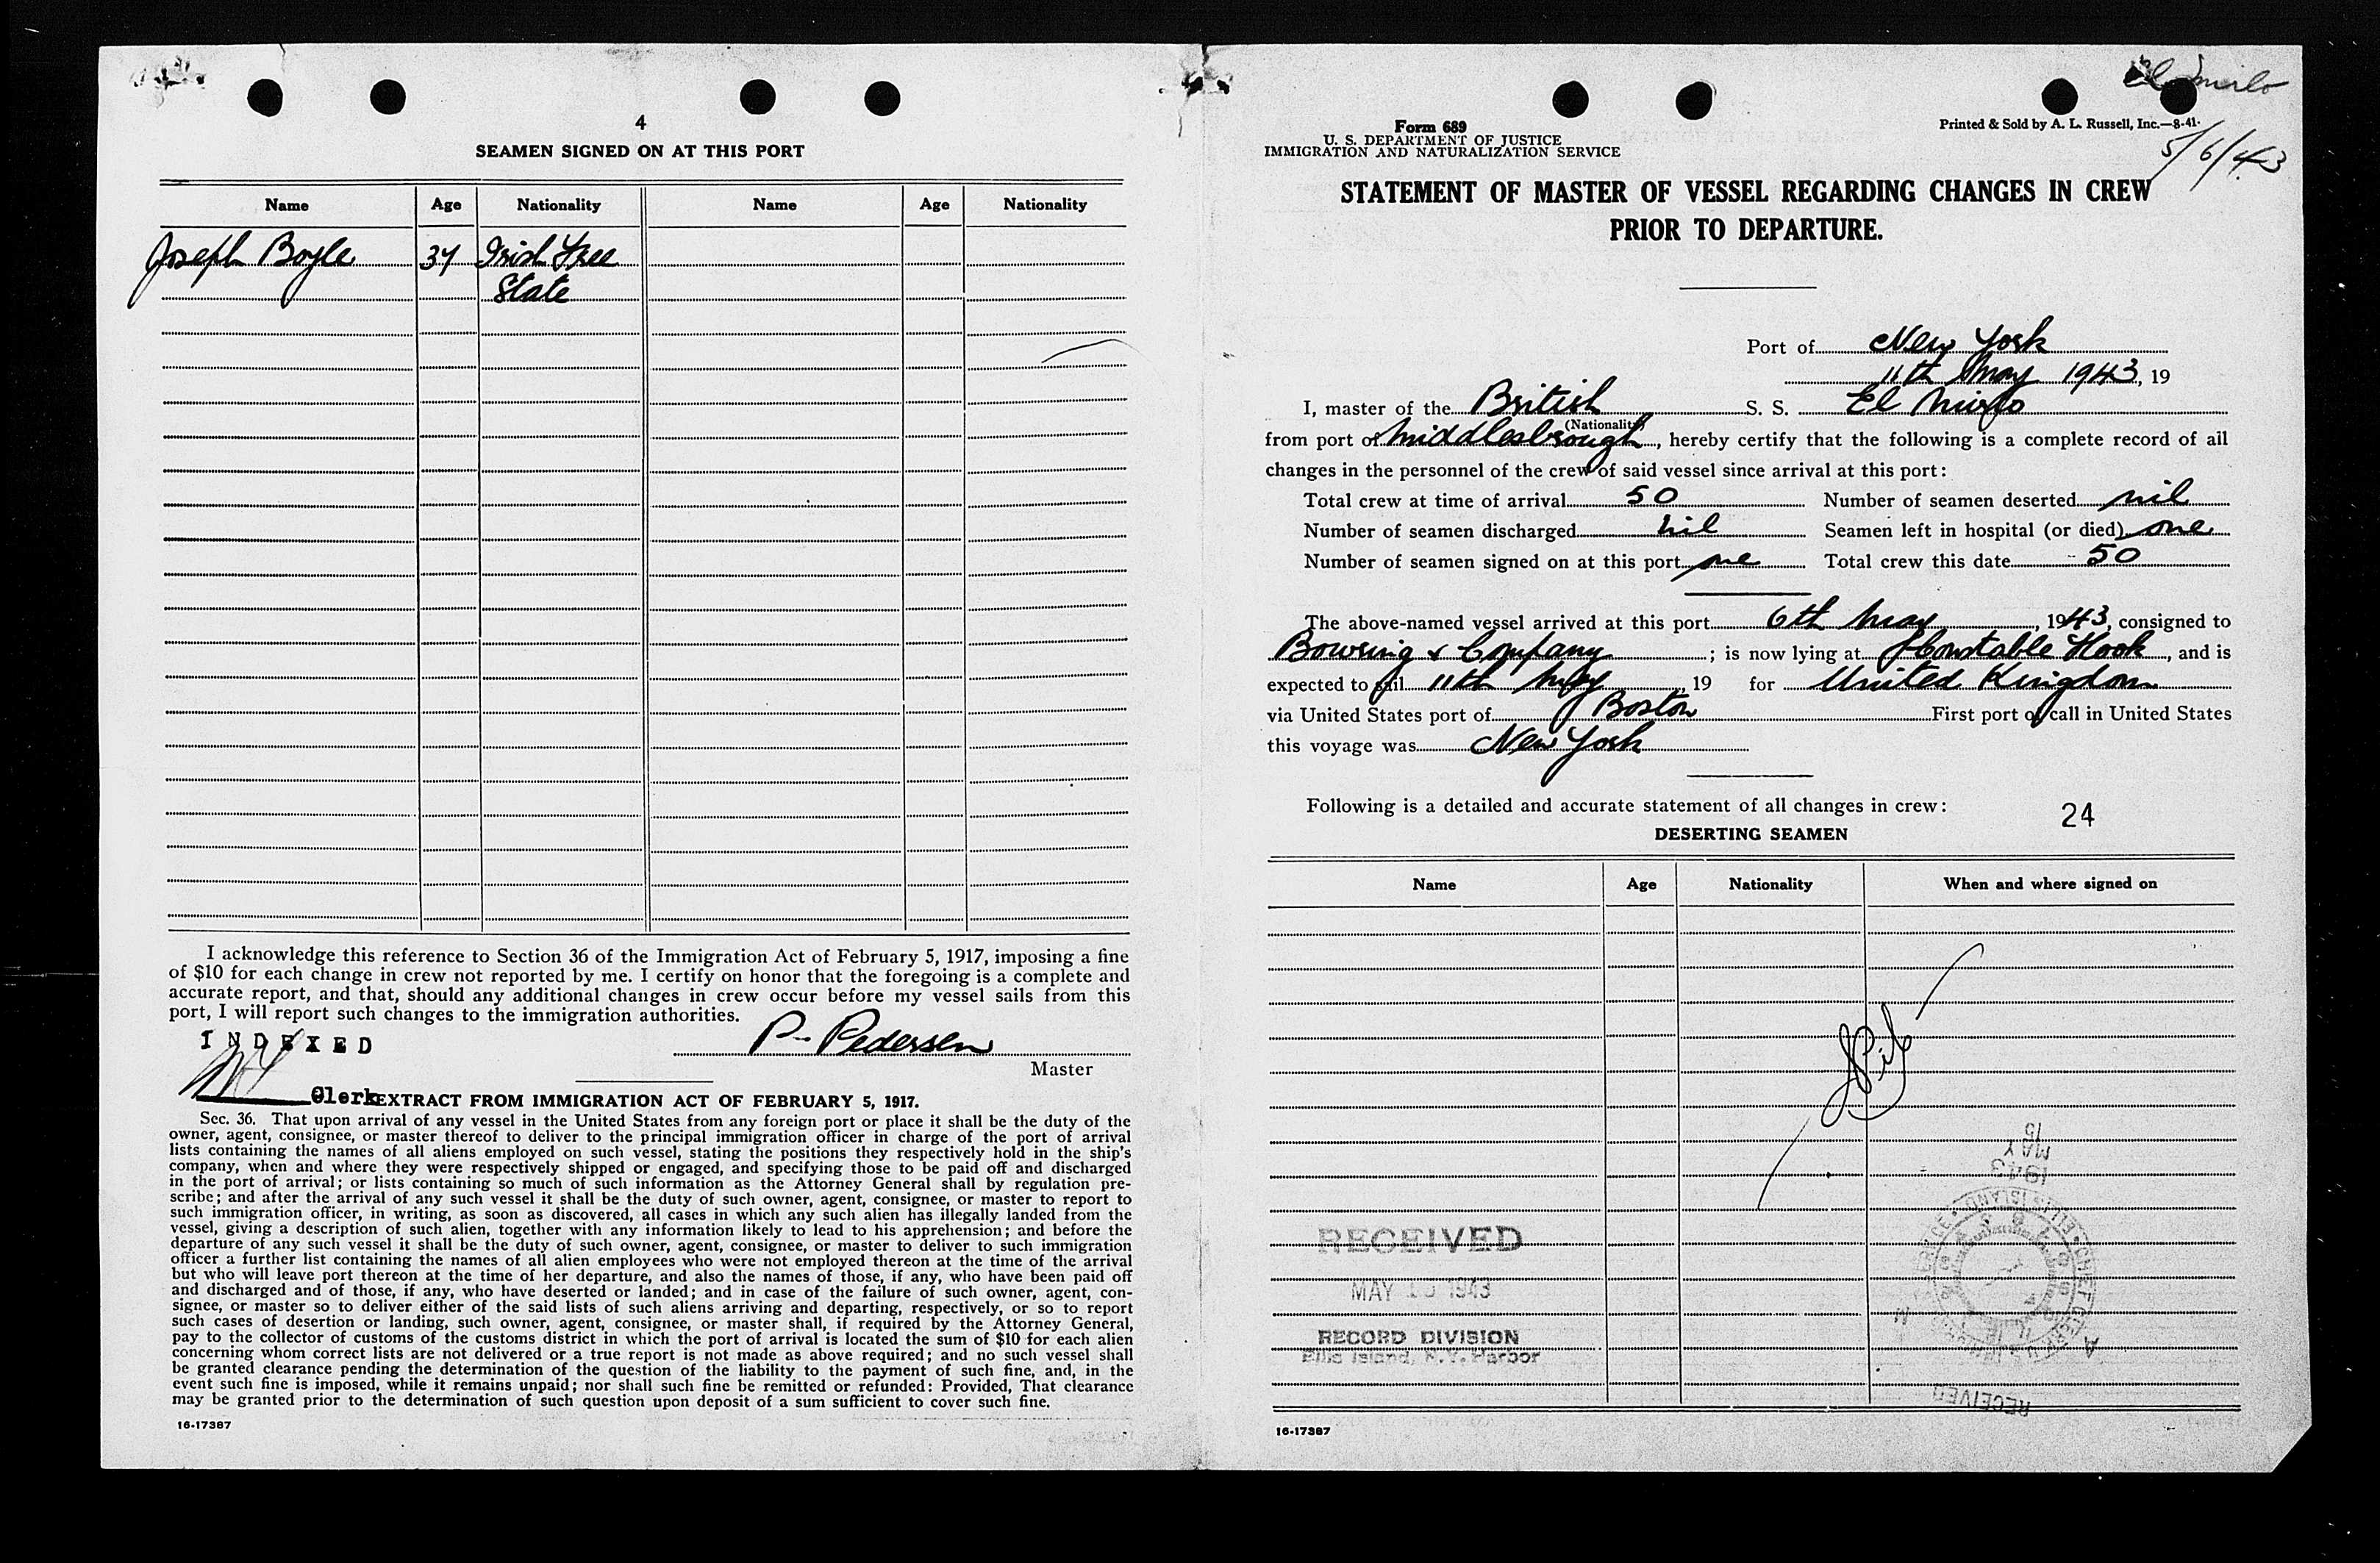 4
SEAMEN SIGNED ON AT THIS PORT
Name Age Nationality Name Age Nationality
Joseph Boyle 37 Irish Free
State
I acknowledge this reference to Section 36 of the Immigration Act of February 5, 1917, imposing a fine
of $10 for each change in crew not reported by me. I certify on honor that the foregoing is a complete and
accurate report, and that, should any additional changes in crew occur before my vessel sails from this
port, I will report such changes to the immigration authorities.
INDEXED
P. Pedersen
Master
Clerk
EXTRACT FROM IMMIGRATION ACT OF FEBRUARY 5, 1917.
Sec. 36. That upon arrival of any vessel in the United States from any foreign port or place it shall be the duty of the
owner, agent, consignee, or master thereof to deliver to the principal immigration officer in charge of the port of arrival
lists containing the names of all aliens employed on such vessel, stating the positions they respectively hold in the ship's
company, when and where they were respectively shipped or engaged, and specifying those to be paid off and discharged
in the port of arrival; or lists containing so much of such information as the Attorney General shall by regulation pre-
scribe; and after the arrival of any such vessel it shall be the duty of such owner, agent, consignee, or master to report to
such immigration officer, in writing, as soon as discovered, all cases in which any such alien has illegally landed from the
vessel, giving a description of such alien, together with any information likely to lead to his apprehension; and before the
departure of any such vessel it shall be the duty of such owner, agent, consignee, or master to deliver to such immigration
officer a further list containing the names of all alien employees who were not employed thereon at the time of the arrival
but who will leave port thereon at the time of her departure, and also the names of those, if any, who have been paid off
and discharged and of those, if any, who have deserted or landed; and in case of the failure of such owner, agent, con-
signee, or master so to deliver either of the said lists of such aliens arriving and departing, respectively, or so to report
such cases of desertion or landing, such owner, agent, consignee, or master shall, if required by the Attorney General,
pay to the collector of customs of the customs district in which the port of arrival is located the sum of $10 for each alien
concerning whom correct lists are not delivered or a true report is not made as above required; and no such vessel shall
be granted clearance pending the determination of the question of the liability to the payment of such fine, and, in the
event such fine is imposed, while it remains unpaid; nor shall such fine be remitted or refunded: Provided, That clearance
may be granted prior to the determination of such question upon deposit of a sum sufficient to cover such fine.
16-17387
El Mirlo
5/6/43
Form 689
U. S. DEPARTMENT OF JUSTICE
IMMIGRATION AND NATURALIZATION SERVICE
Printed & Sold by A. L. Russell, Inc.—8-41.
STATEMENT OF MASTER OF VESSEL REGARDING CHANGES IN CREW
PRIOR TO DEPARTURE.
Port of New York
11th May 1943, 19
I, master of the British S. S. El Mirlo
(Nationality)
from port of Middlesbrough, hereby certify that the following is a complete record of all
changes in the personnel of the crew of said vessel since arrival at this port:
Total crew at time of arrival 50 Number of seamen deserted nil
Number of seamen discharged nil Seamen left in hospital (or died) one
Number of seamen signed on at this port one Total crew this date 50
The above-named vessel arrived at this port 6th May, 1943, consigned to
Bowring & Company; is now lying at Constable Hook, and is
expected to sail 11th May, 19 for United Kingdom
via United States port of Boston First port of call in United States
this voyage was New York
Following is a detailed and accurate statement of all changes in crew:
24
DESERTING SEAMEN
Name Age Nationality When and where signed on
MAY 15
1943
RECEIVED
MAY 1943
RECORD DIVISION
Ellis Island, N.Y. Harbor
RECEIVED
16-17387